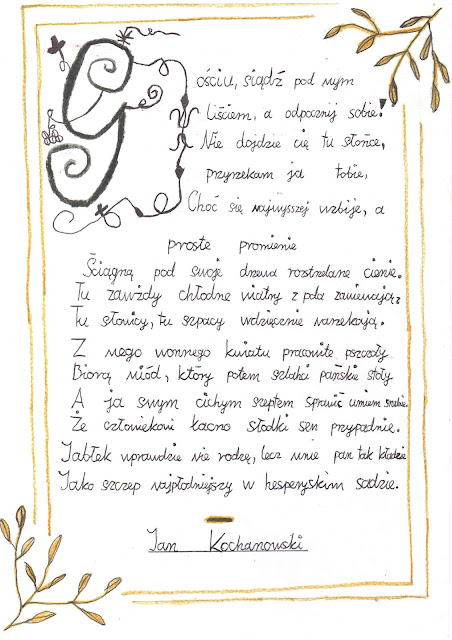 Gościu, siądź pod mym
liściem, a odpocznij sobie!
Nie dojdzie cię tu słońce,
przyrzekam ja tobie,
Choć się najwyższej wzbije, a
proste promienie
Ściągną pod swoje drzewa rozstrzelane cienie.
Tu zawżdy chłodne wiatry z pola zawiewają,
Tu słowicy, tu szpacy wdzięcznie narzekają.
Z mego wonnego kwiatu pracowite pszczoły
Biorą miód, który potem szlachci pańskie stoły
A ja swym cichym szeptem sprawić umiem snadnie
Że człowiekowi łacno słodki sen przypadnie.
Jabłek wprawdzie nie rodzę, lecz mnie pan tak kładzie
Jako szczep najpłodniejszy w hesperyskim sadzie.
Jan Kochanowski